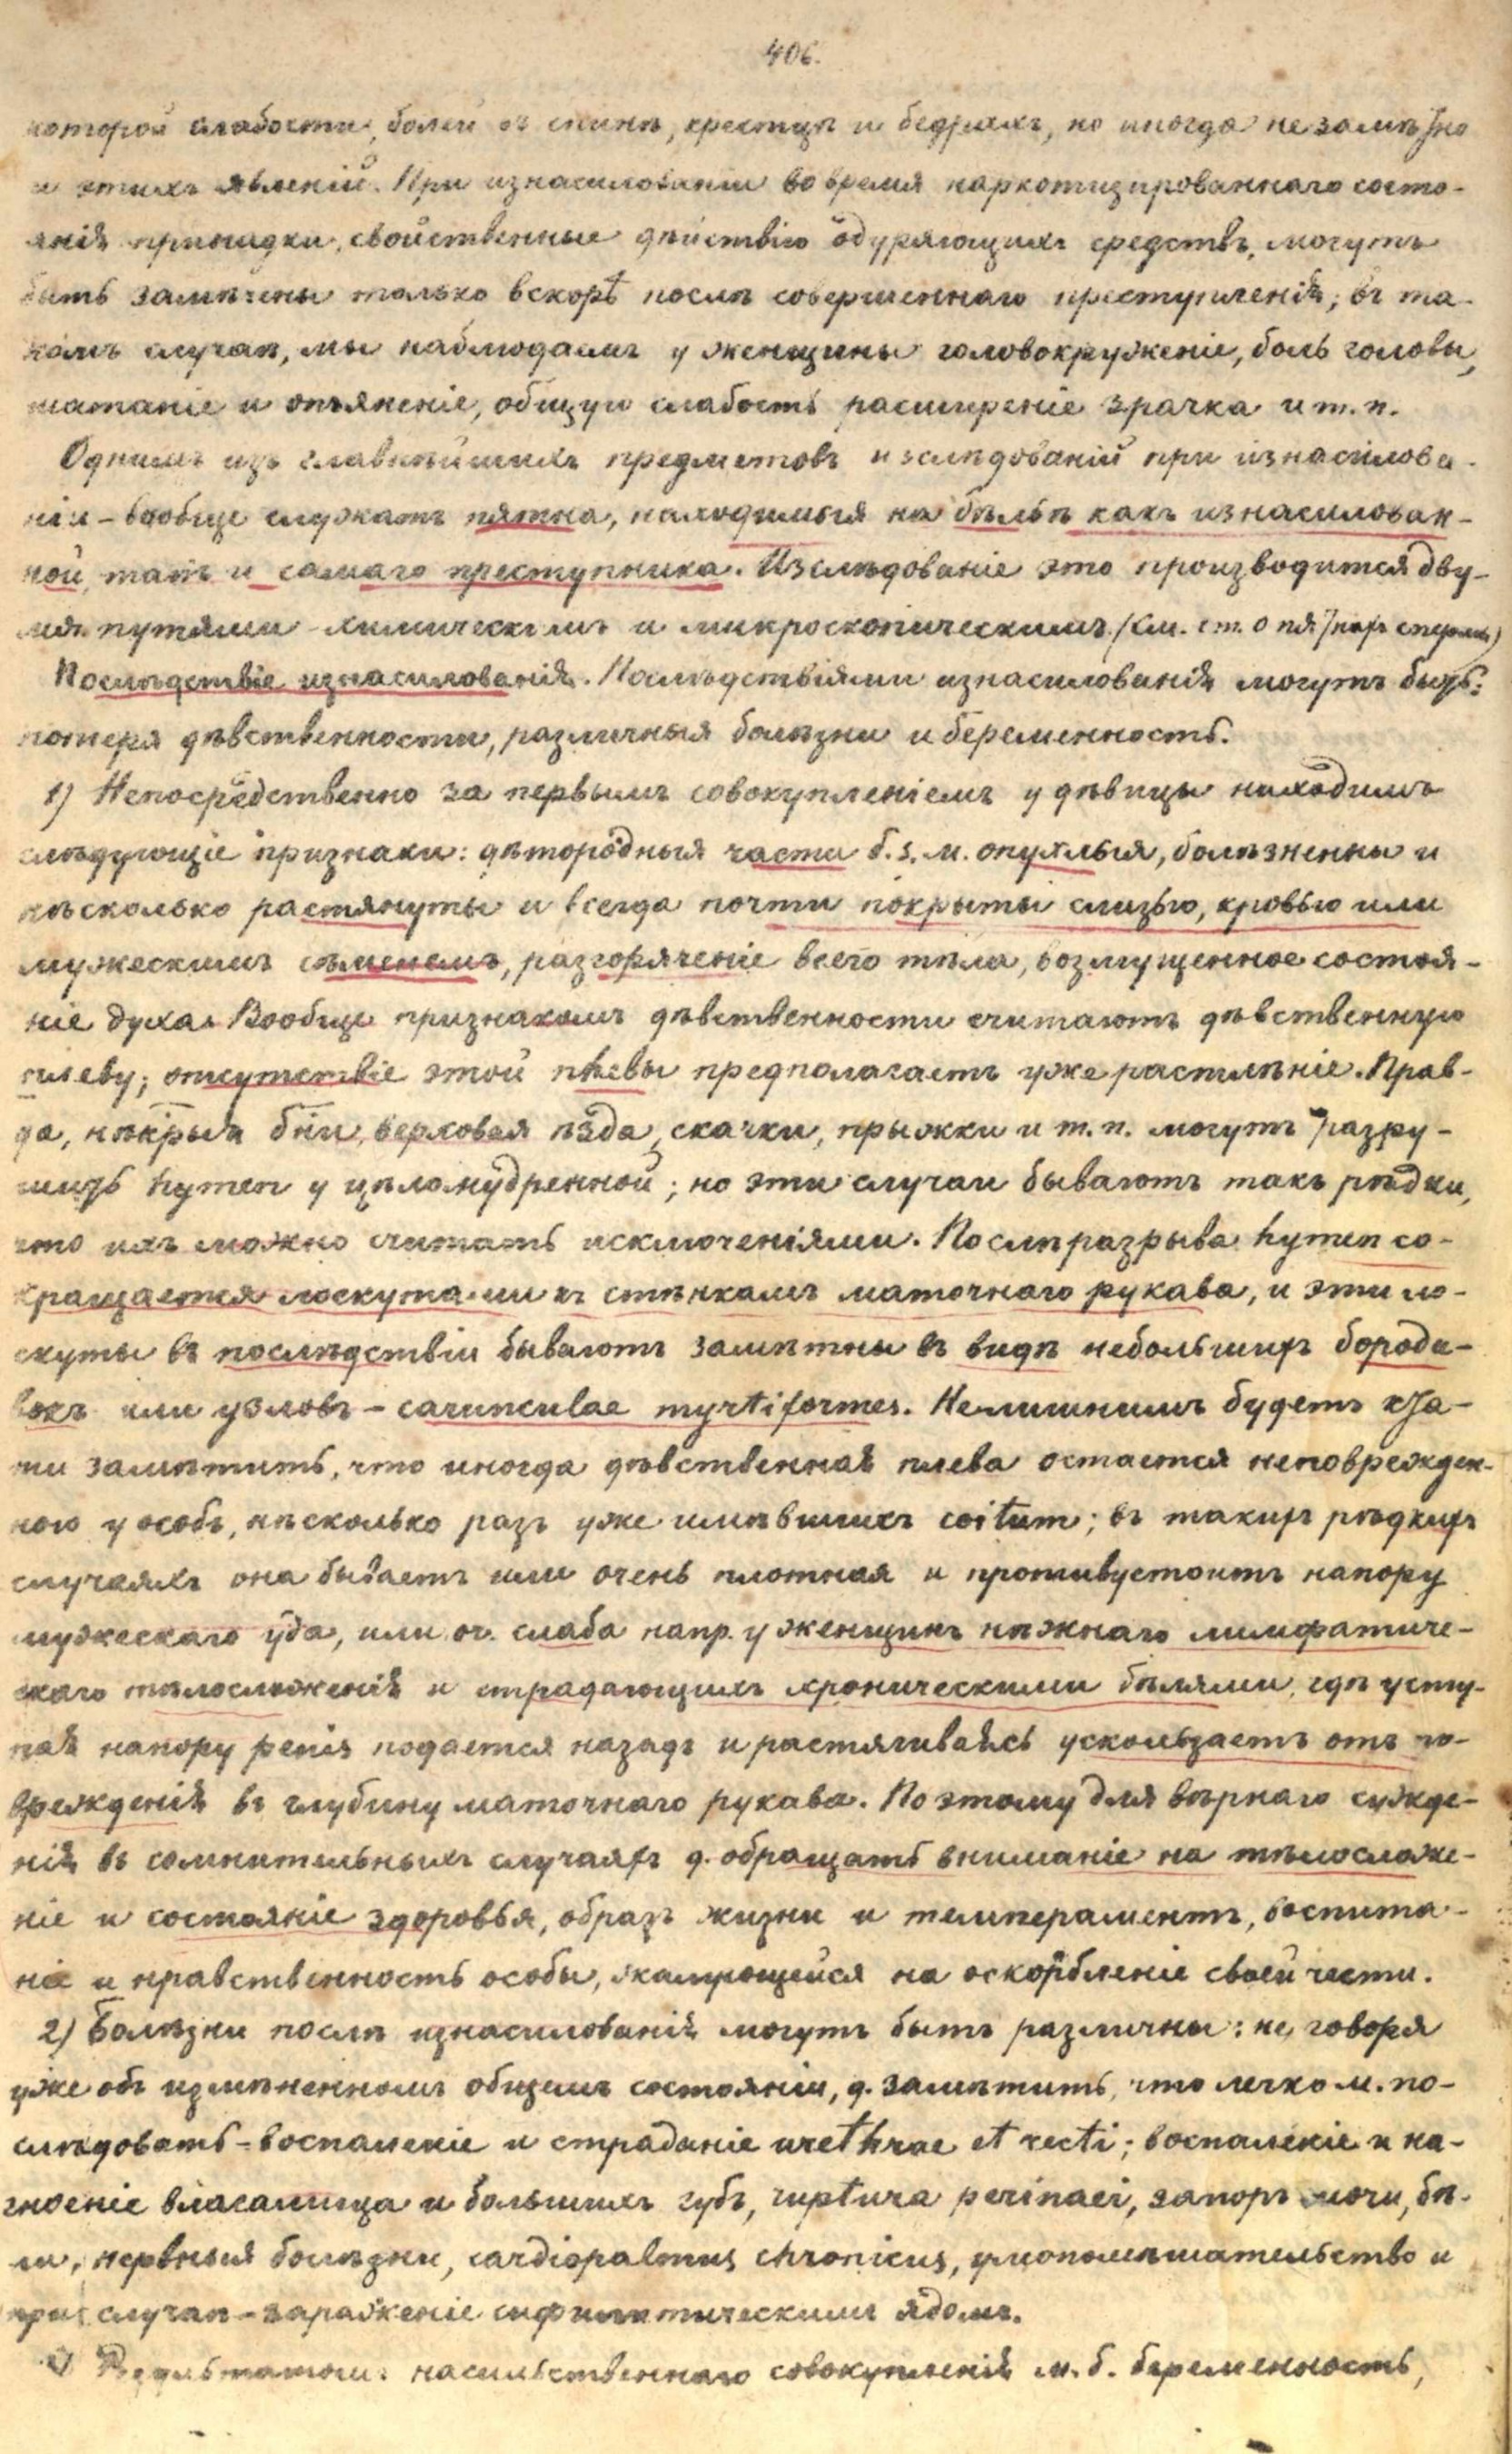 406.
которой слабости, болей въ спинѣ, крестцѣ и бедрахъ, но иногда не замѣтно
и этихъ явленій. При изнасилованіи во время наркотизированнаго состо-
янія припадки, свойственные дѣйствію одуряющихъ средствъ, могутъ
быть замѣчены только вскорѣ послѣ совершеннаго преступленія; въ та-
комъ случаѣ, мы наблюдаемъ у женщины головокруженіе, боль головы,
шатаніе и опьяненіе, общую слабость расширеніе зрачка и т. п.
Однимъ изъ главнѣйшихъ предметовъ изслѣдованій при изнасилова-
ніи - вообще служатъ пятна, находимыя на бѣльѣ какъ изнасилован-
ной, такъ и самаго преступника. Изслѣдованіе это производится дву-
мя путями - химическимъ и микроскопическимъ. (См. ст. о пятнахъ спермы)
Послѣдствіе изнасилованія. Послѣдствіями изнасилованія могутъ быть:
потеря дѣвственности, различныя болѣзни и беременность.
1) Непосредственно за первымъ совокупленіемъ у дѣвицы находимъ
слѣдующіе признаки: дѣтородныя части б. з. м. опухлыя, болѣзненны и
нѣсколько растянуты и всегда почти покрыты слизью, кровью или
мужескимъ сѣменемъ, разгоряченіе всего тѣла, возмущенное состоя-
ніе духа. Вообще признакомъ дѣвственности считаютъ дѣвственную
плеву; отсутствіе этой плевы предполагаетъ уже растлѣніе. Прав-
да, нѣкрыя бни, верховая ѣзда, скачки, прыжки и т. п. могутъ разру-
шить hymen у цѣломудренной; но эти случаи бываютъ такъ рѣдки,
что ихъ можно считать исключеніями. Послѣ разрыва hymen со-
кращается лоскутами къ стѣнкамъ маточнаго рукава, и эти ло-
скуты въ послѣдствіи бываютъ замѣтны въ видѣ небольшихъ борода-
вокъ или узловъ - carunculae myrtiformes. Нелишнимъ будетъ кста-
ти замѣтить, что иногда дѣвственная плева остается неповрежден-
ною у особъ, нѣсколько разъ уже имѣвшихъ coitum; въ такихъ рѣдкихъ
случаяхъ она бываетъ или очень плотная и противустоитъ напору
мужескаго уда, или оч. слаба напр. у женщинъ нѣжнаго лимфатиче-
скаго тѣлосложенія и страдающихъ хроническими бѣлями, гдѣ усту-
пая напору penis подается назадъ и растягиваясь ускользаетъ отъ по-
врежденія въ глубину маточнаго рукава. По этому для вѣрнаго сужде-
нія въ сомнительныхъ случаяхъ д. обращать вниманіе на тѣлосложе-
ніе и состояніе здоровья, образъ жизни и темпераментъ, воспита-
ніе и нравственность особы, жалующейся на оскорбленіе своей чести.
2) Болѣзни послѣ изнасилованія могутъ быть различны: не говоря
уже объ измѣненномъ общемъ состояніи, д. замѣтить, что легко м. по-
слѣдовать - воспаленіе и страданіе urethrae et recti; воспаленіе и на-
гноеніе влагалища и большихъ губъ, ruptura perinaei, запоръ мочи, бѣ-
ли, нервныя болѣзни, cardiopalmus chronicus, умопомѣшательство и
при случаѣ - зараженіе сифилитическимъ ядомъ.
Результатомъ насильственнаго совокупленія м. б. беременность,